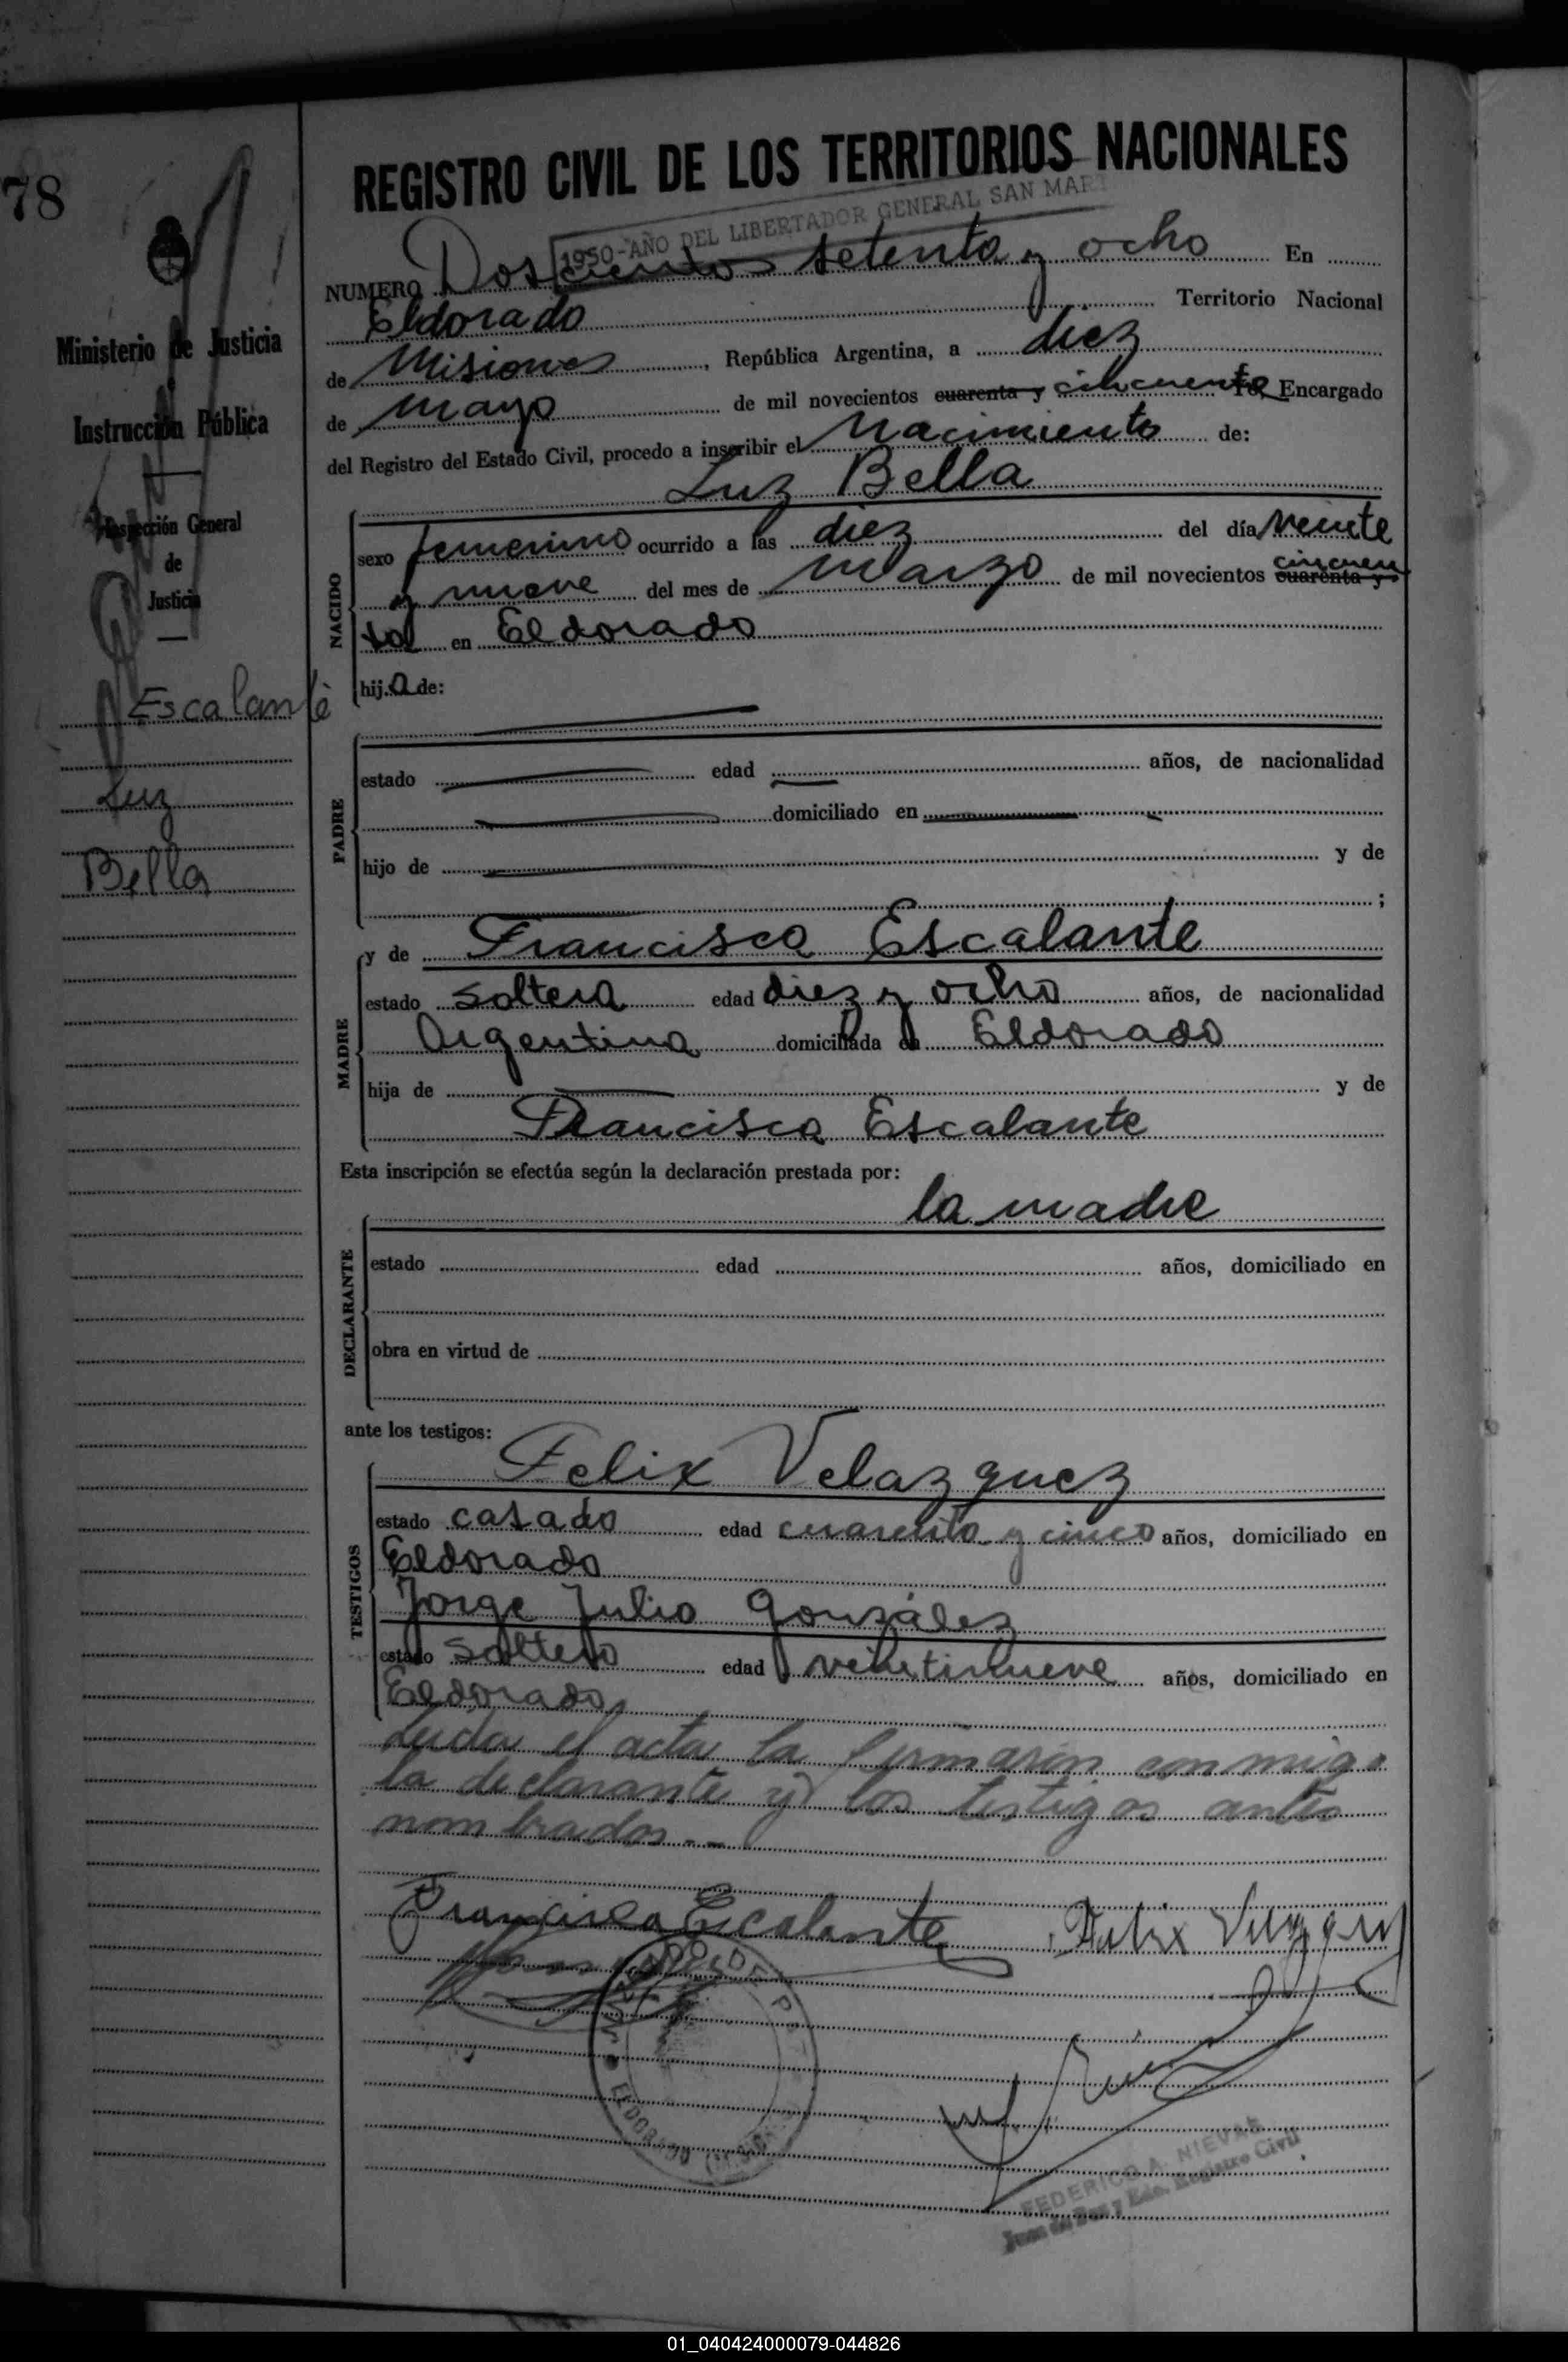 78
REGISTRO CIVIL DE LOS TERRITORIOS NACIONALES
1950-AÑO DEL LIBERTADOR GENERAL SAN MAR
NUMERO Doscientos setenta y ocho En
Eldorado Territorio Nacional
de Misiones, República Argentina, a diez
de mayo de mil novecientos cuarenta y cincuenta Yo, Encargado
del Registro del Estado Civil, procedo a inscribir el Nacimiento de:
Luz Bella
Ministerio de Justicia
Instrucción Pública
Inspección General
de
Justicia
Escalante
Luz
Bella
NACIDO
sexo femenino ocurrido a las diez del día veinte
y nueve del mes de Marzo de mil novecientos cuarenta y cincuen
ta en Eldorado
hija de:
PADRE
estado edad años, de nacionalidad
domiciliado en
hijo de y de
;
MADRE
y de Francisca Escalante
estado soltera edad diez y ocho años, de nacionalidad
Argentina domiciliada en Eldorado
hija de y de
Francisca Escalante
Esta inscripción se efectúa según la declaración prestada por:
la madre
DECLARANTE
estado edad años, domiciliado en
obra en virtud de
ante los testigos:
TESTIGOS
Felix Velazquez
estado casado edad cuarenta y cinco años, domiciliado en
Eldorado
Jorge Julio González
estado soltero edad veintinueve años, domiciliado en
Eldorado
Leida el acta la firmaron conmigo
la declarante y los testigos antes
nombrados.--
Francisca Escalante Felix Velazquez
ELDORADO
FEDERICO A. NIEVAS
Juez de Paz y Edo. Registro Civil
01_040424000079-044826